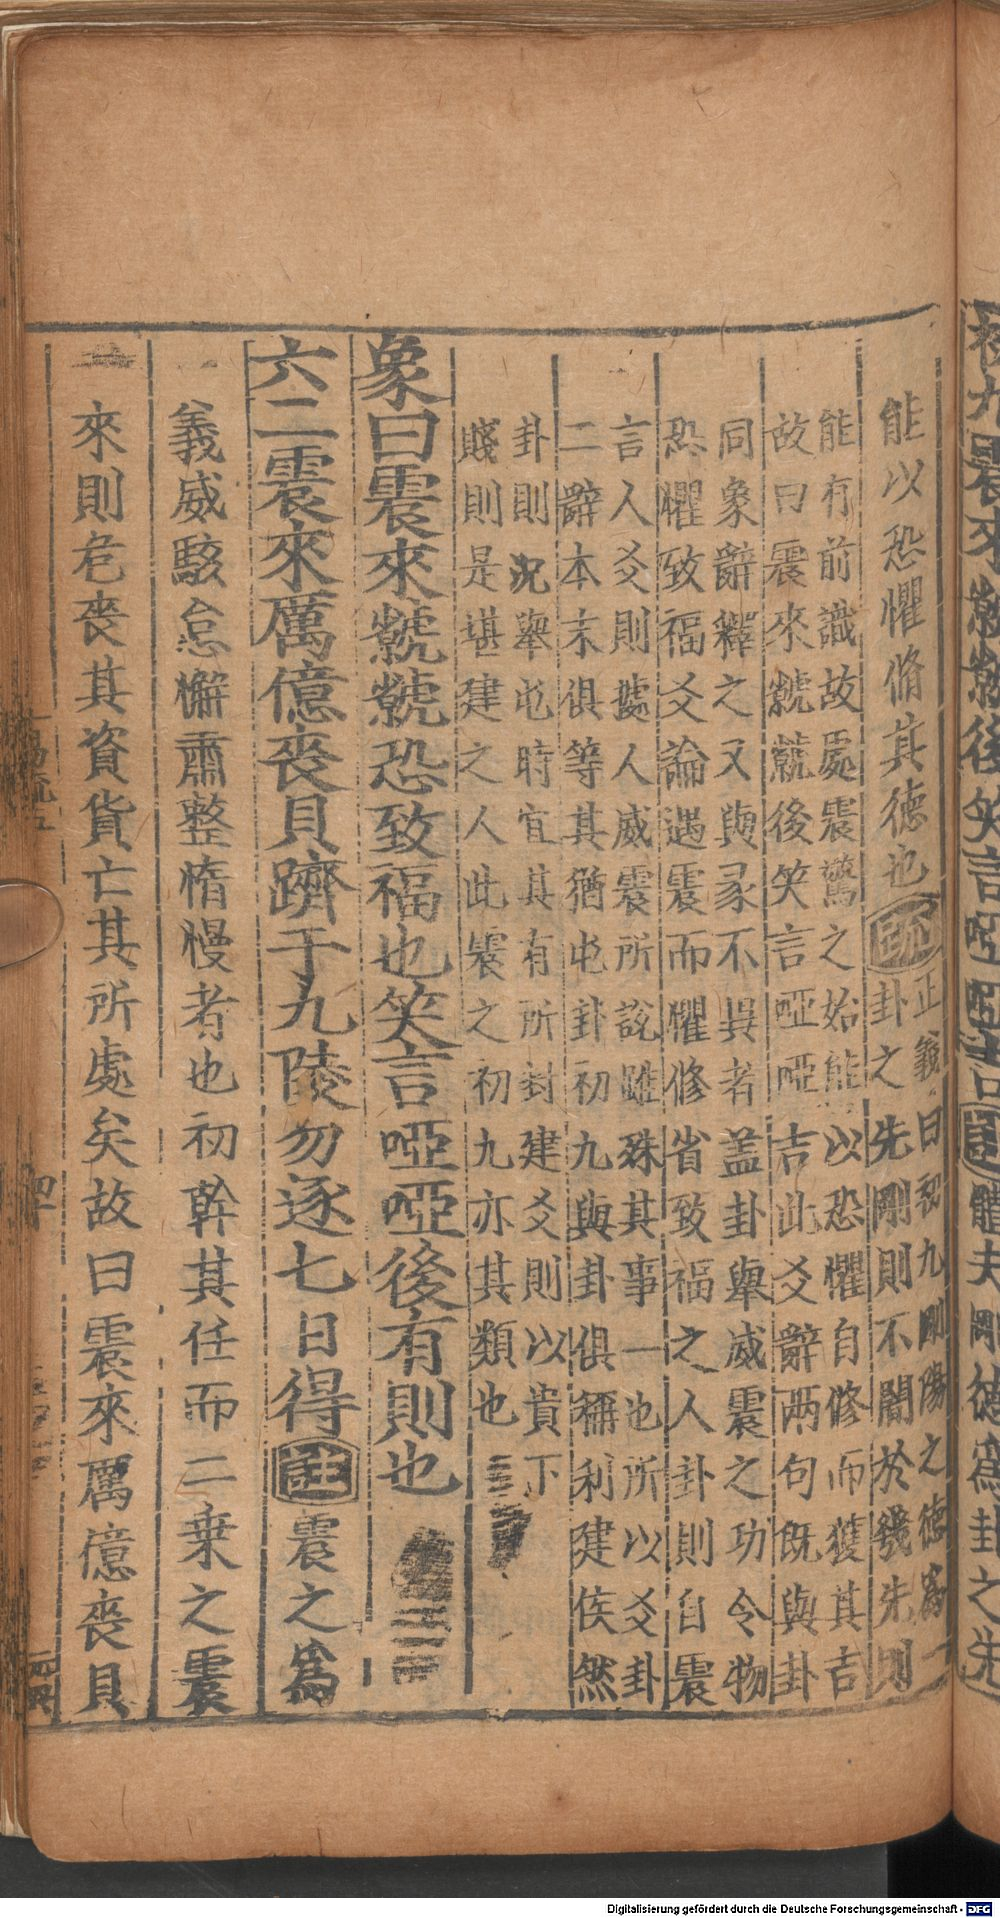 初九震來虩虩後笑言啞啞吉註體夫剛德為卦之先
能以恐懼脩其德也疏正義曰初九剛陽之德為一
卦之先剛則不闇於幾先則
能有前識故處震驚之始能以恐懼自修而獲其吉
故曰震來虩虩後笑言啞啞吉此爻辭兩句既與卦
同象辭釋之又與彖不異者蓋卦舉威震之功令物
恐懼致福爻論遇震而懼修省致福之人卦則自震
言人爻則據人威震所說雖殊其事一也所以爻卦
二辭本末俱等其猶屯卦初九與卦俱稱利建侯然
卦則況舉屯時宜其有所封建爻則以貴下
賤則是堪建之人此震之初九亦其類也
象曰震來虩虩恐致福也笑言啞啞後有則也
六二震來厲億喪貝躋于九陵勿逐七日得註震之為
義威駭怠懈肅整惰慢者也初幹其任而二乗之震
來則危喪其資貨亡其所處矣故曰震來厲億喪貝
Digitalisierung gefördert durch die Deutsche Forschungsgemeinschaft - DFG